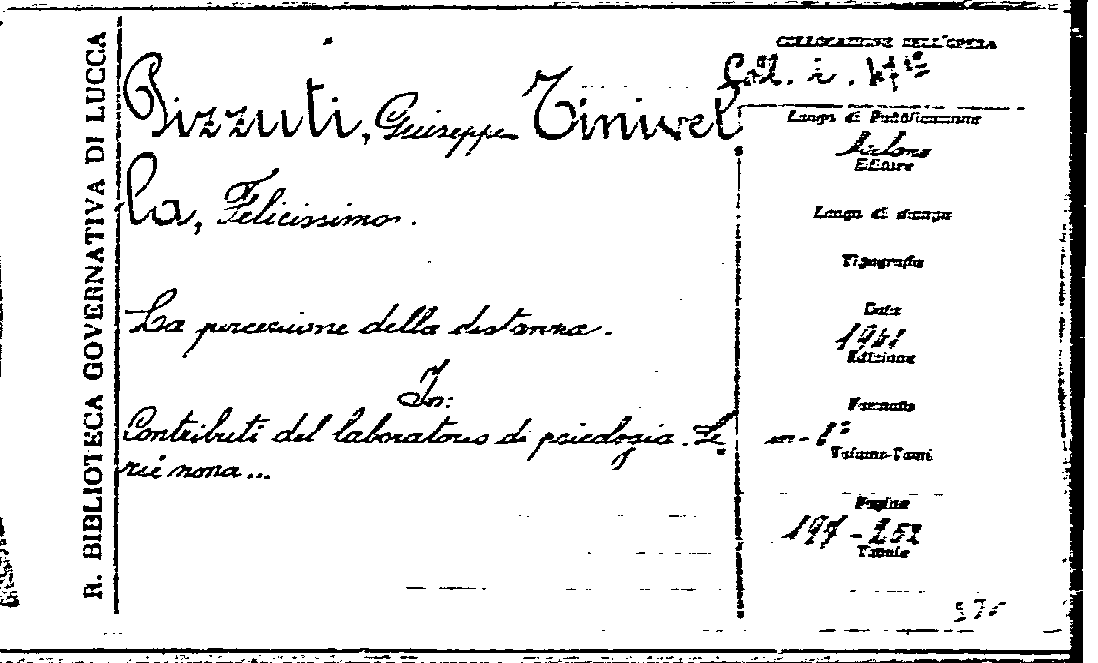 R. BIBLIOTECA GOVERNATIVA DI LUCCA
Pizzuti, Giuseppe Tinivel
la, Felicissimo.
La percezione della distanza.
In:
Contributi del laboratorio di psicologia. Se
rie nona...
COLLOCAZIONE DELL'OPERA
Coll. i.
Luogo di Pubblicazione
Milano
Editore
Luogo di stampa
Tipografia
Data
1941
Edizione
Formato
in-8°
Volume-Tomi
Pagine
197-252
Tavole